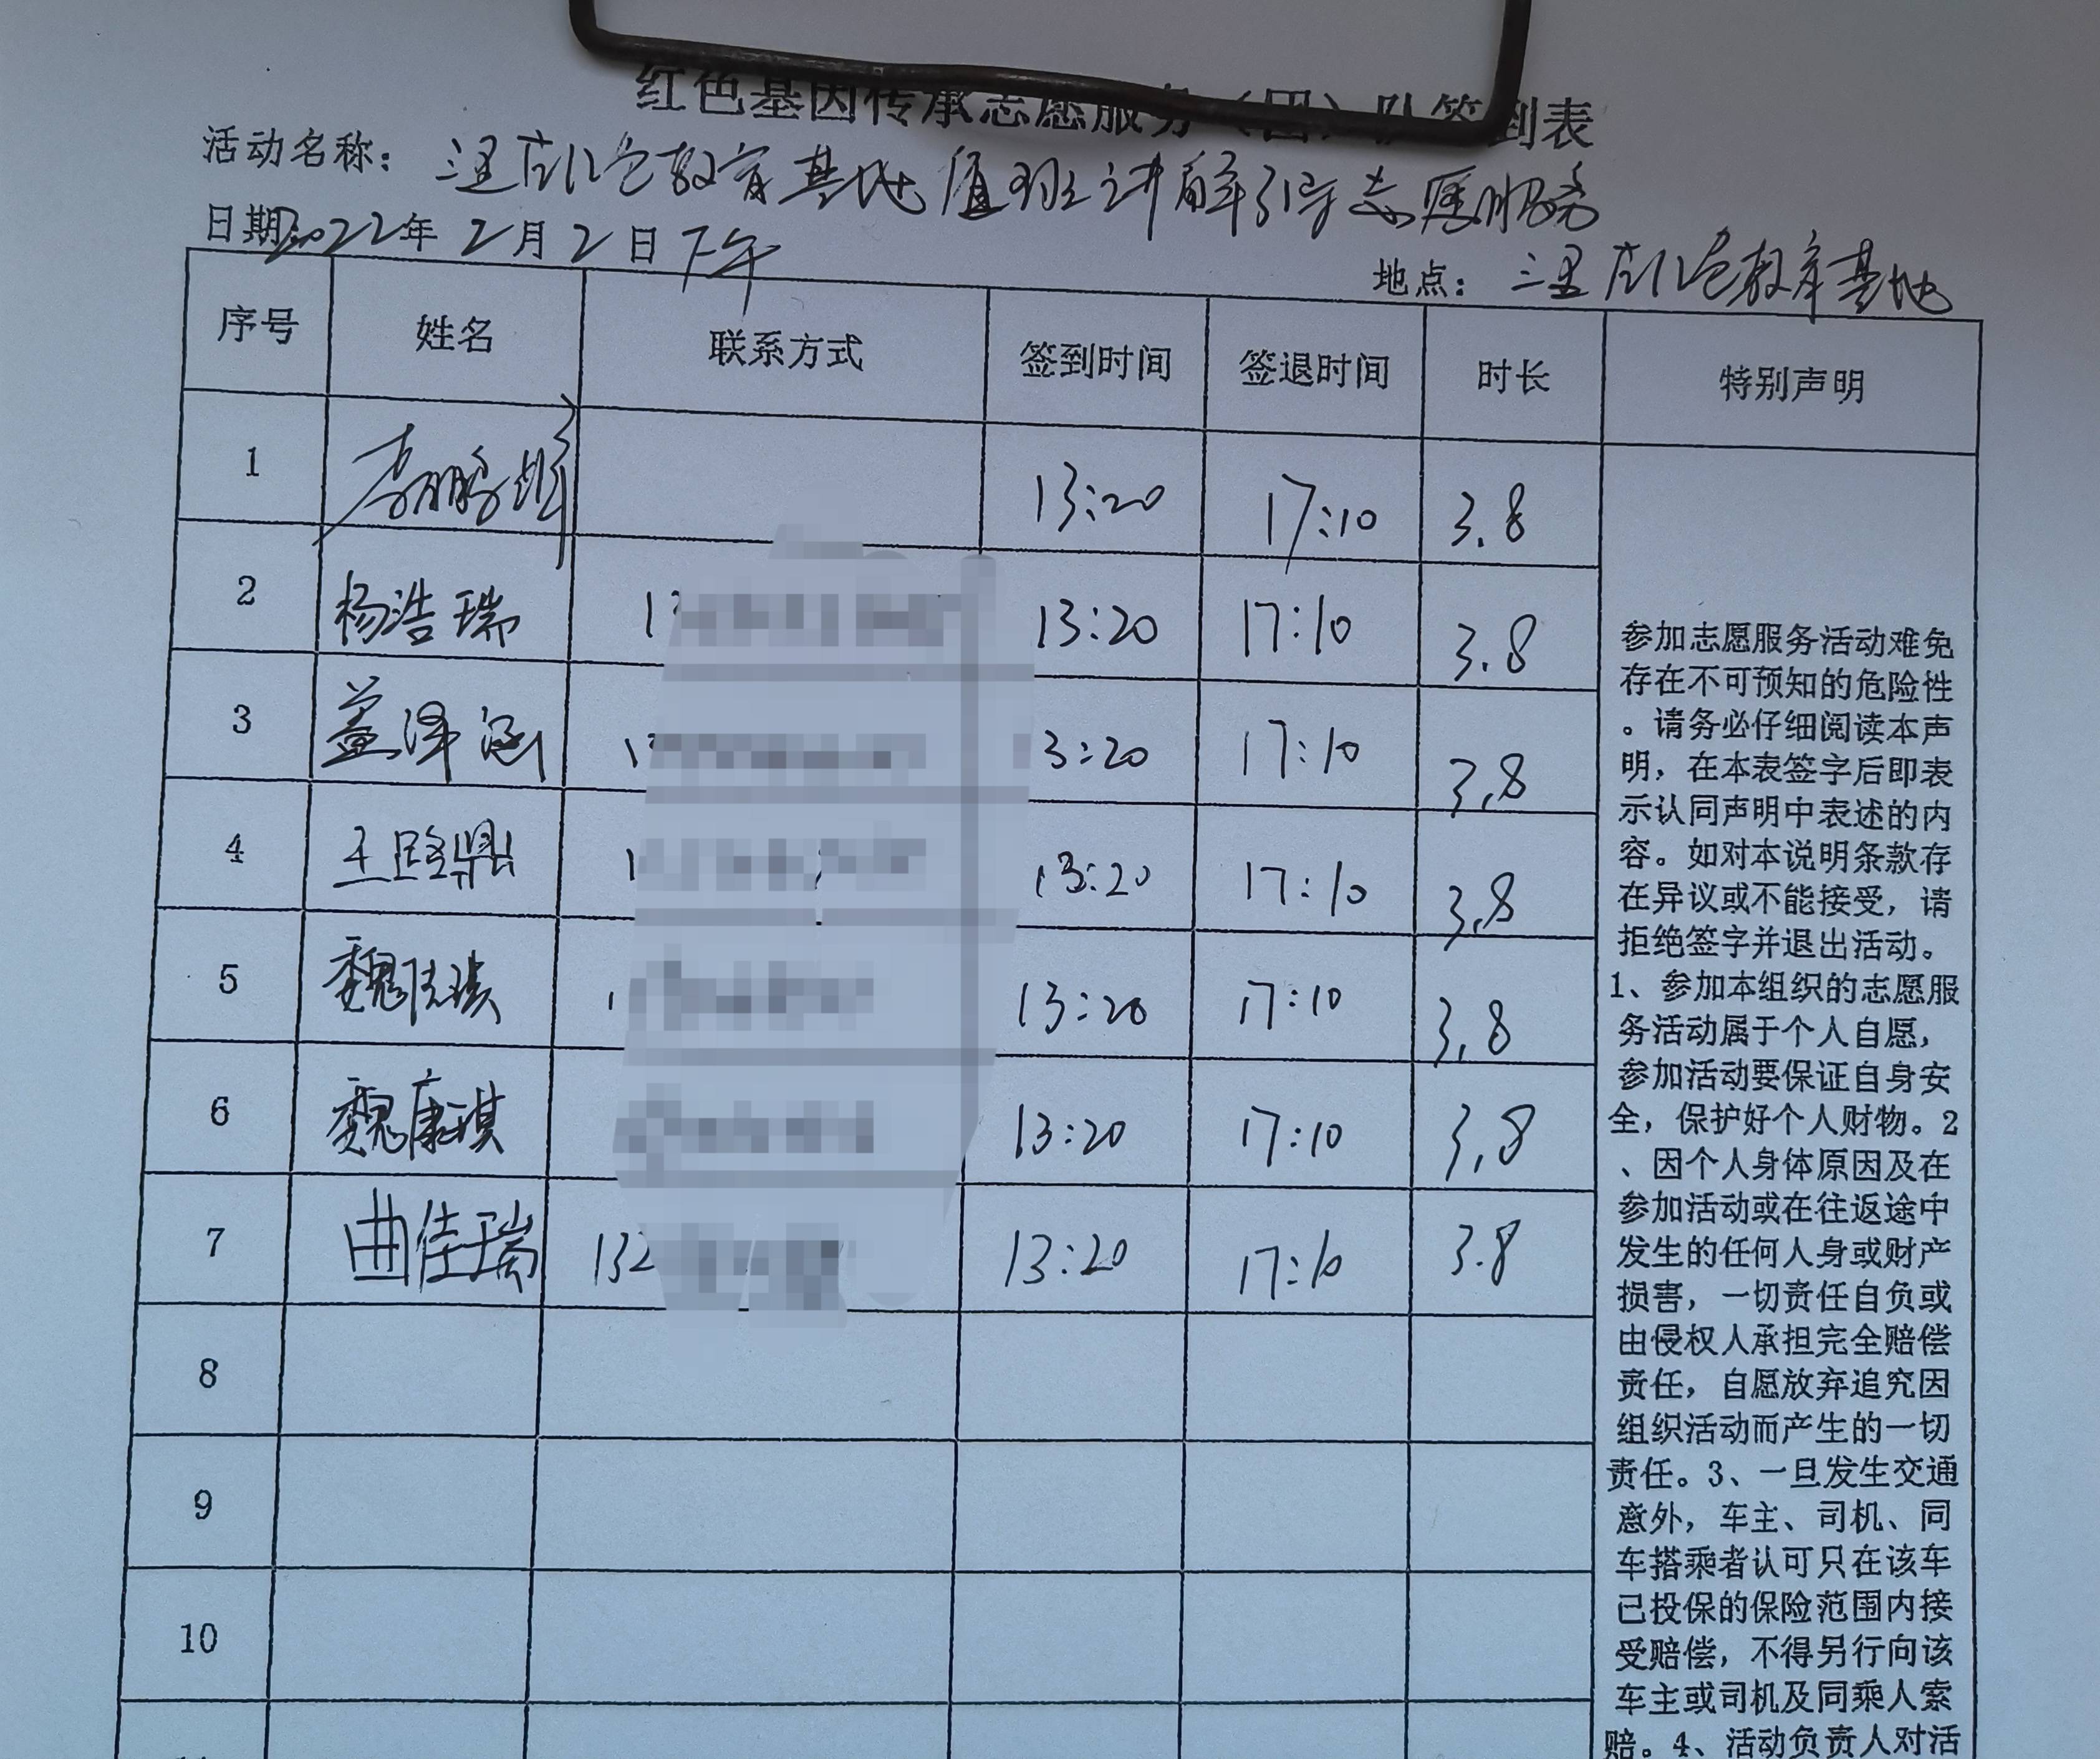 红色基因传承志愿服务（团）队签到表
活动名称：三里庄红色教育基地值班讲解引导志愿服务
日期2022年2月2日下午
地点：三里庄红色教育基地
序号 姓名 联系方式 签到时间 签退时间 时长 特别声明
1 13:20 17:10 3.8
2 杨浩瑞 13:20 17:10 3.8
3 盖泽涵 3:20 17:10 3.8
4 13:20 17:10 3.8
5 13:20 17:10 3.8
6 魏康琪 13:20 17:10 3.8
7 曲佳瑞 132 13:20 17:10 3.8
8
9
10
参加志愿服务活动难免
存在不可预知的危险性
。请务必仔细阅读本声
明，在本表签字后即表
示认同声明中表述的内
容。如对本说明条款存
在异议或不能接受，请
拒绝签字并退出活动。
1、参加本组织的志愿服
务活动属于个人自愿，
参加活动要保证自身安
全，保护好个人财物。2
、因个人身体原因及在
参加活动或在往返途中
发生的任何人身或财产
损害，一切责任自负或
由侵权人承担完全赔偿
责任，自愿放弃追究因
组织活动而产生的一切
责任。3、一旦发生交通
意外，车主、司机、同
车搭乘者认可只在该车
已投保的保险范围内接
受赔偿，不得另行向该
车主或司机及同乘人索
赔。4、活动负责人对活